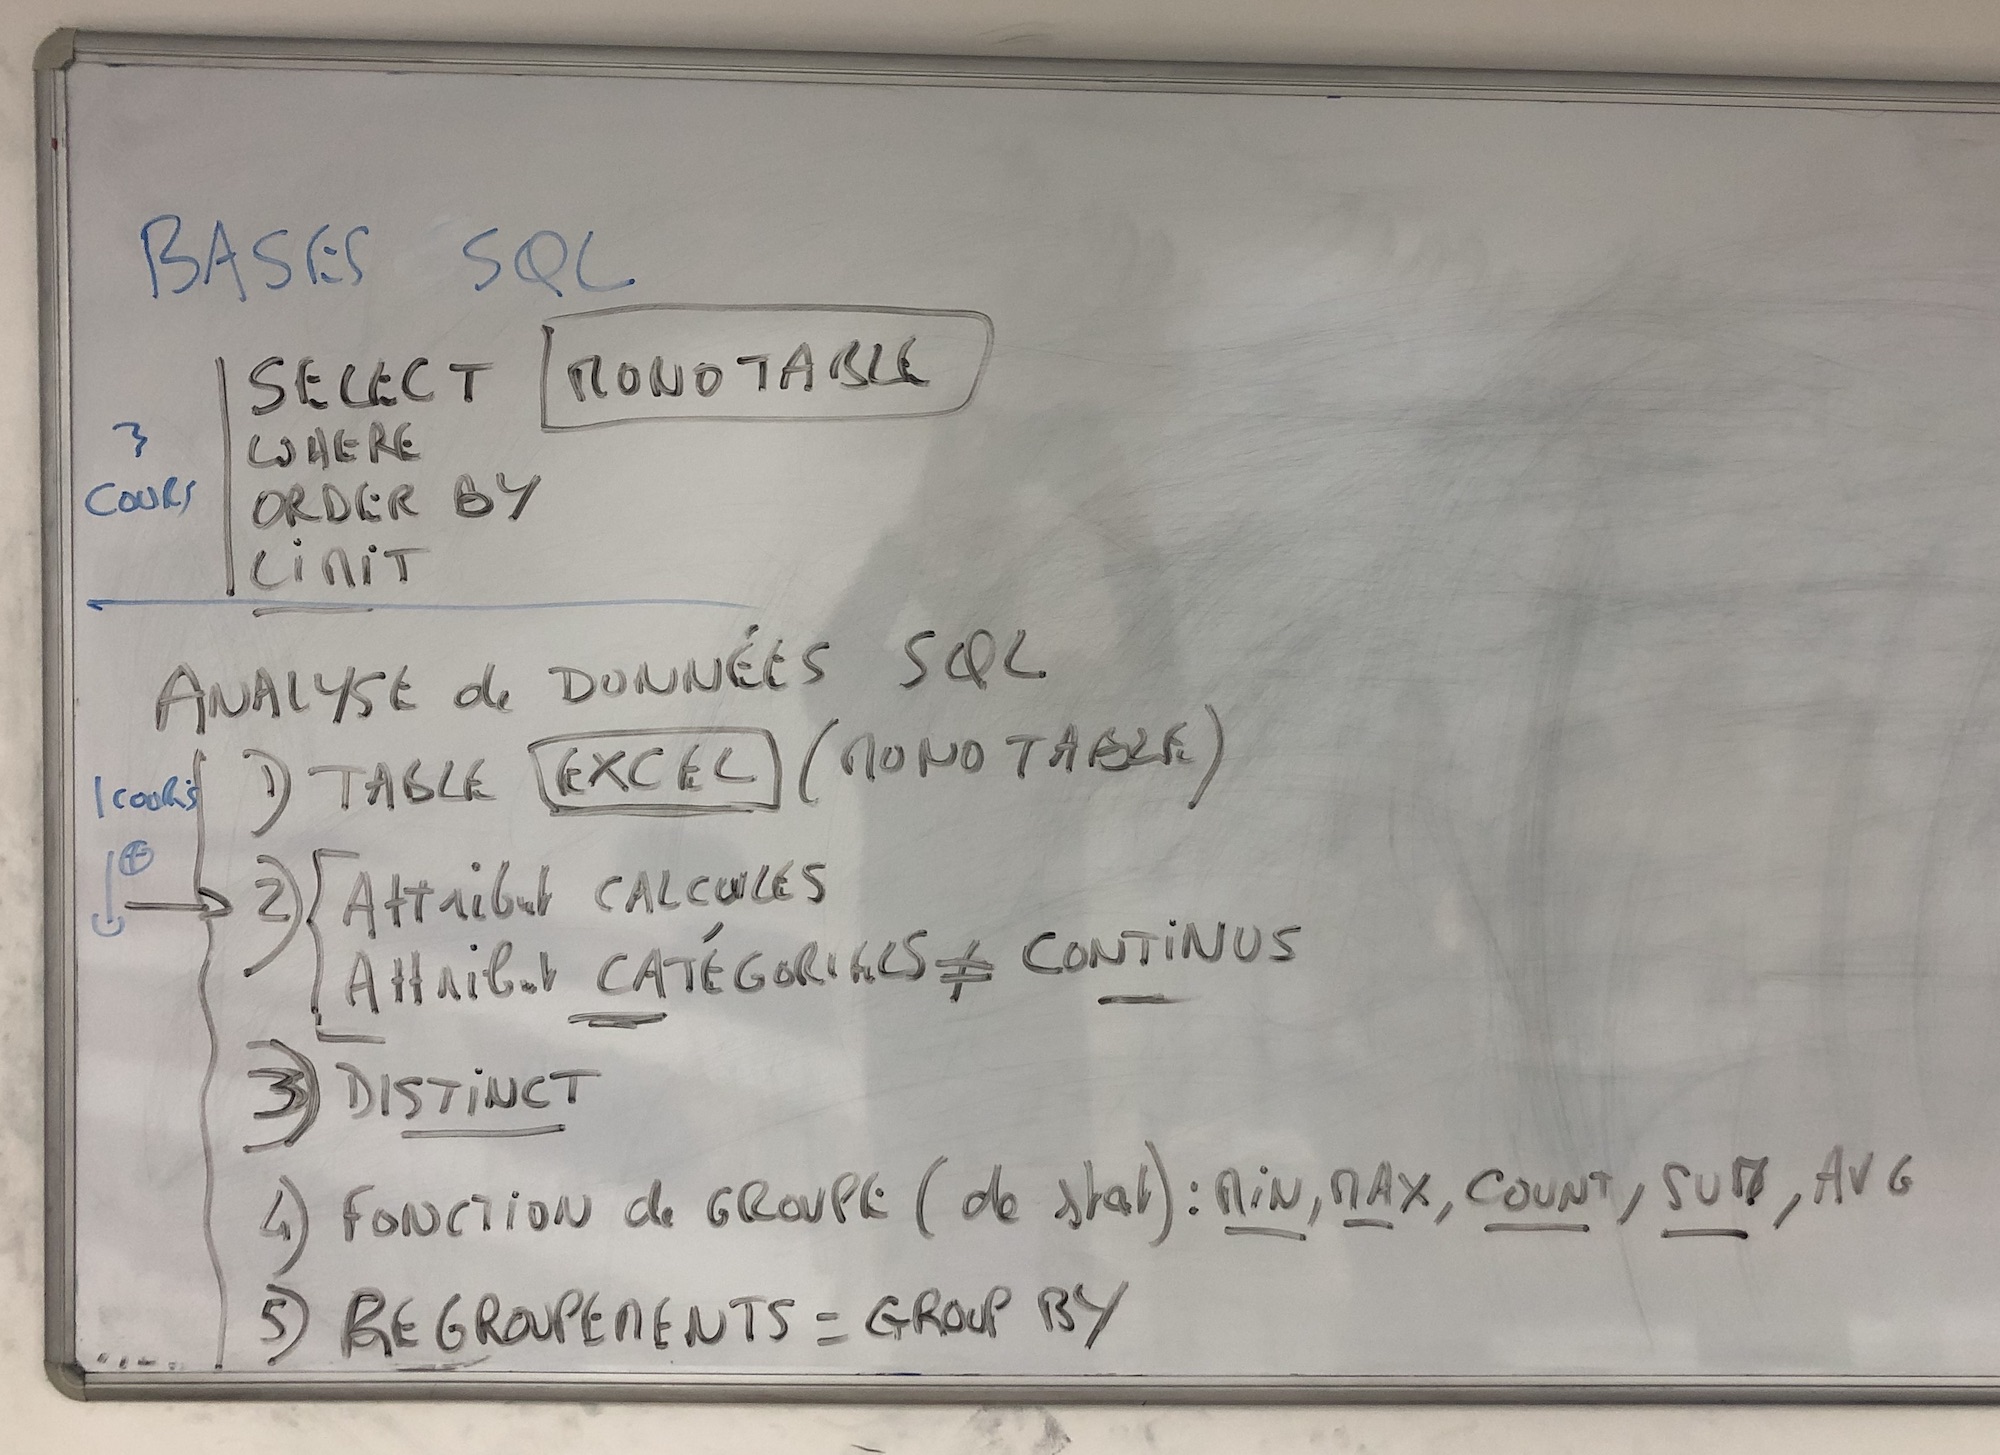 BASES SQL
SELECT MONOTABLE
WHERE
3
COURS
ORDER BY
LIMIT
ANALYSE de DONNÉES SQL
1 COURS
1) TABLE EXCEL (MONOTABLE)
+
2) Attribut CALCULES
Attribut CATÉGORIELS ≠ CONTINUS
3) DISTINCT
4) FONCTION de GROUPE (de stat) : MIN, MAX, COUNT, SUM, AVG
5) REGROUPEMENTS = GROUP BY